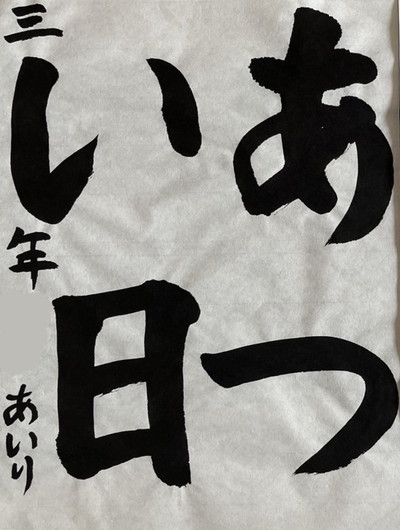 あつ
い日
三年 あいり